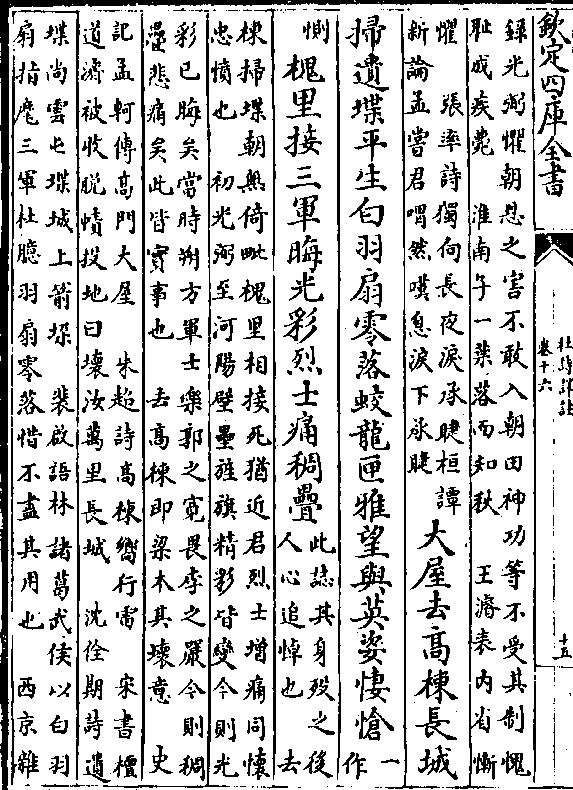 欽定四庫全書
杜詩詳註
卷十六
十五
録光弼懼朝恩之害不敢入朝田神功等不受其制愧
耻成疾薨 淮南子一葉落而知秋 王濬表内省慚
懼 張率詩獨向長夜淚承睫桓譚
新論孟嘗君喟然嘆息淚下承睫
大屋去高棟長城
掃遺堞平生白羽扇零落蛟龍匣雅望與英姿悽愴
一作
惻
槐里接三軍晦光彩烈士痛稠疊
此誌其身殁之後
人心追悼也 去
棟掃堞朝無倚毗槐里相接死猶近君烈士增痛同懷
忠憤也 初光弼至河陽壁壘旌旗精彩皆變今則光
彩已晦矣當時朔方軍士樂郭之寛畏李之嚴今則稠
疊悲痛矣此皆實事也 去高棟即梁木其壞意 史
記孟軻傳高門大屋 朱超詩高棟響行雷 宋書檀
道濟被收脱幘投地曰壞汝萬里長城 沈佺期詩遺
堞尚雲屯堞城上箭垛 裴啟語林諸葛武侯以白羽
扇指麾三軍杜臆羽扇零落惜不盡其用也 西京雜